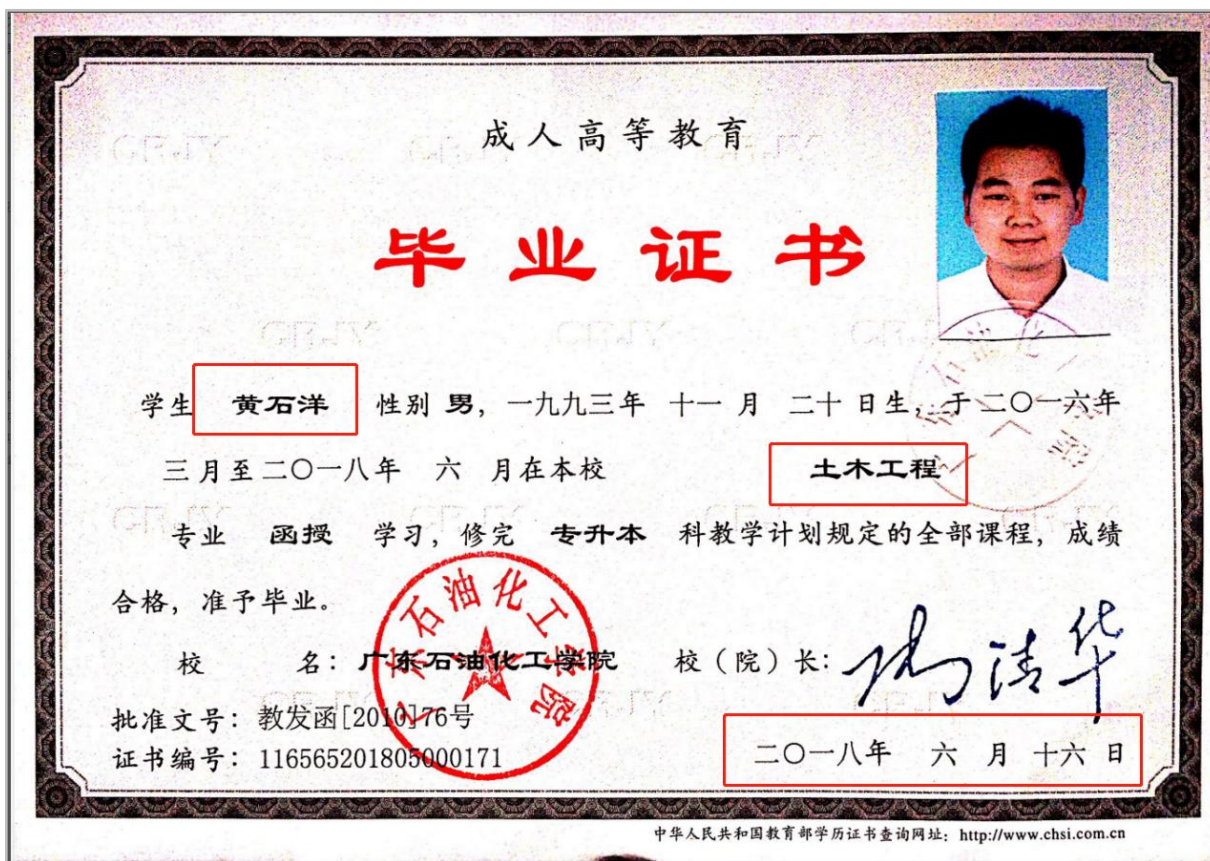 成人高等教育
毕业证书
学生 黄石洋 性别 男，一九九三年 十一 月 二十 日生，于二〇一六年
三月至二〇一八年 六 月在本校 土木工程
专业 函授 学习，修完 专升本 科教学计划规定的全部课程，成绩
合格，准予毕业。
校 名：广东石油化工学院 校（院）长：
广东石油化工学院
批准文号：教发函[2010]76号
证书编号：116565201805000171 二〇一八年 六 月 十六 日
中华人民共和国教育部学历证书查询网址：http://www.chsi.com.cn